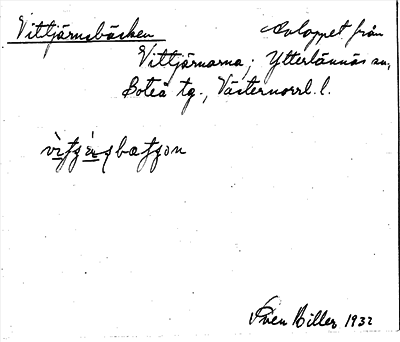 Vittjärnsbäcken Avloppet från
Vittjärnarna; Ytterlännäs sn,
Boteå tg., Västernorrl. l.
Sven Biller 1932